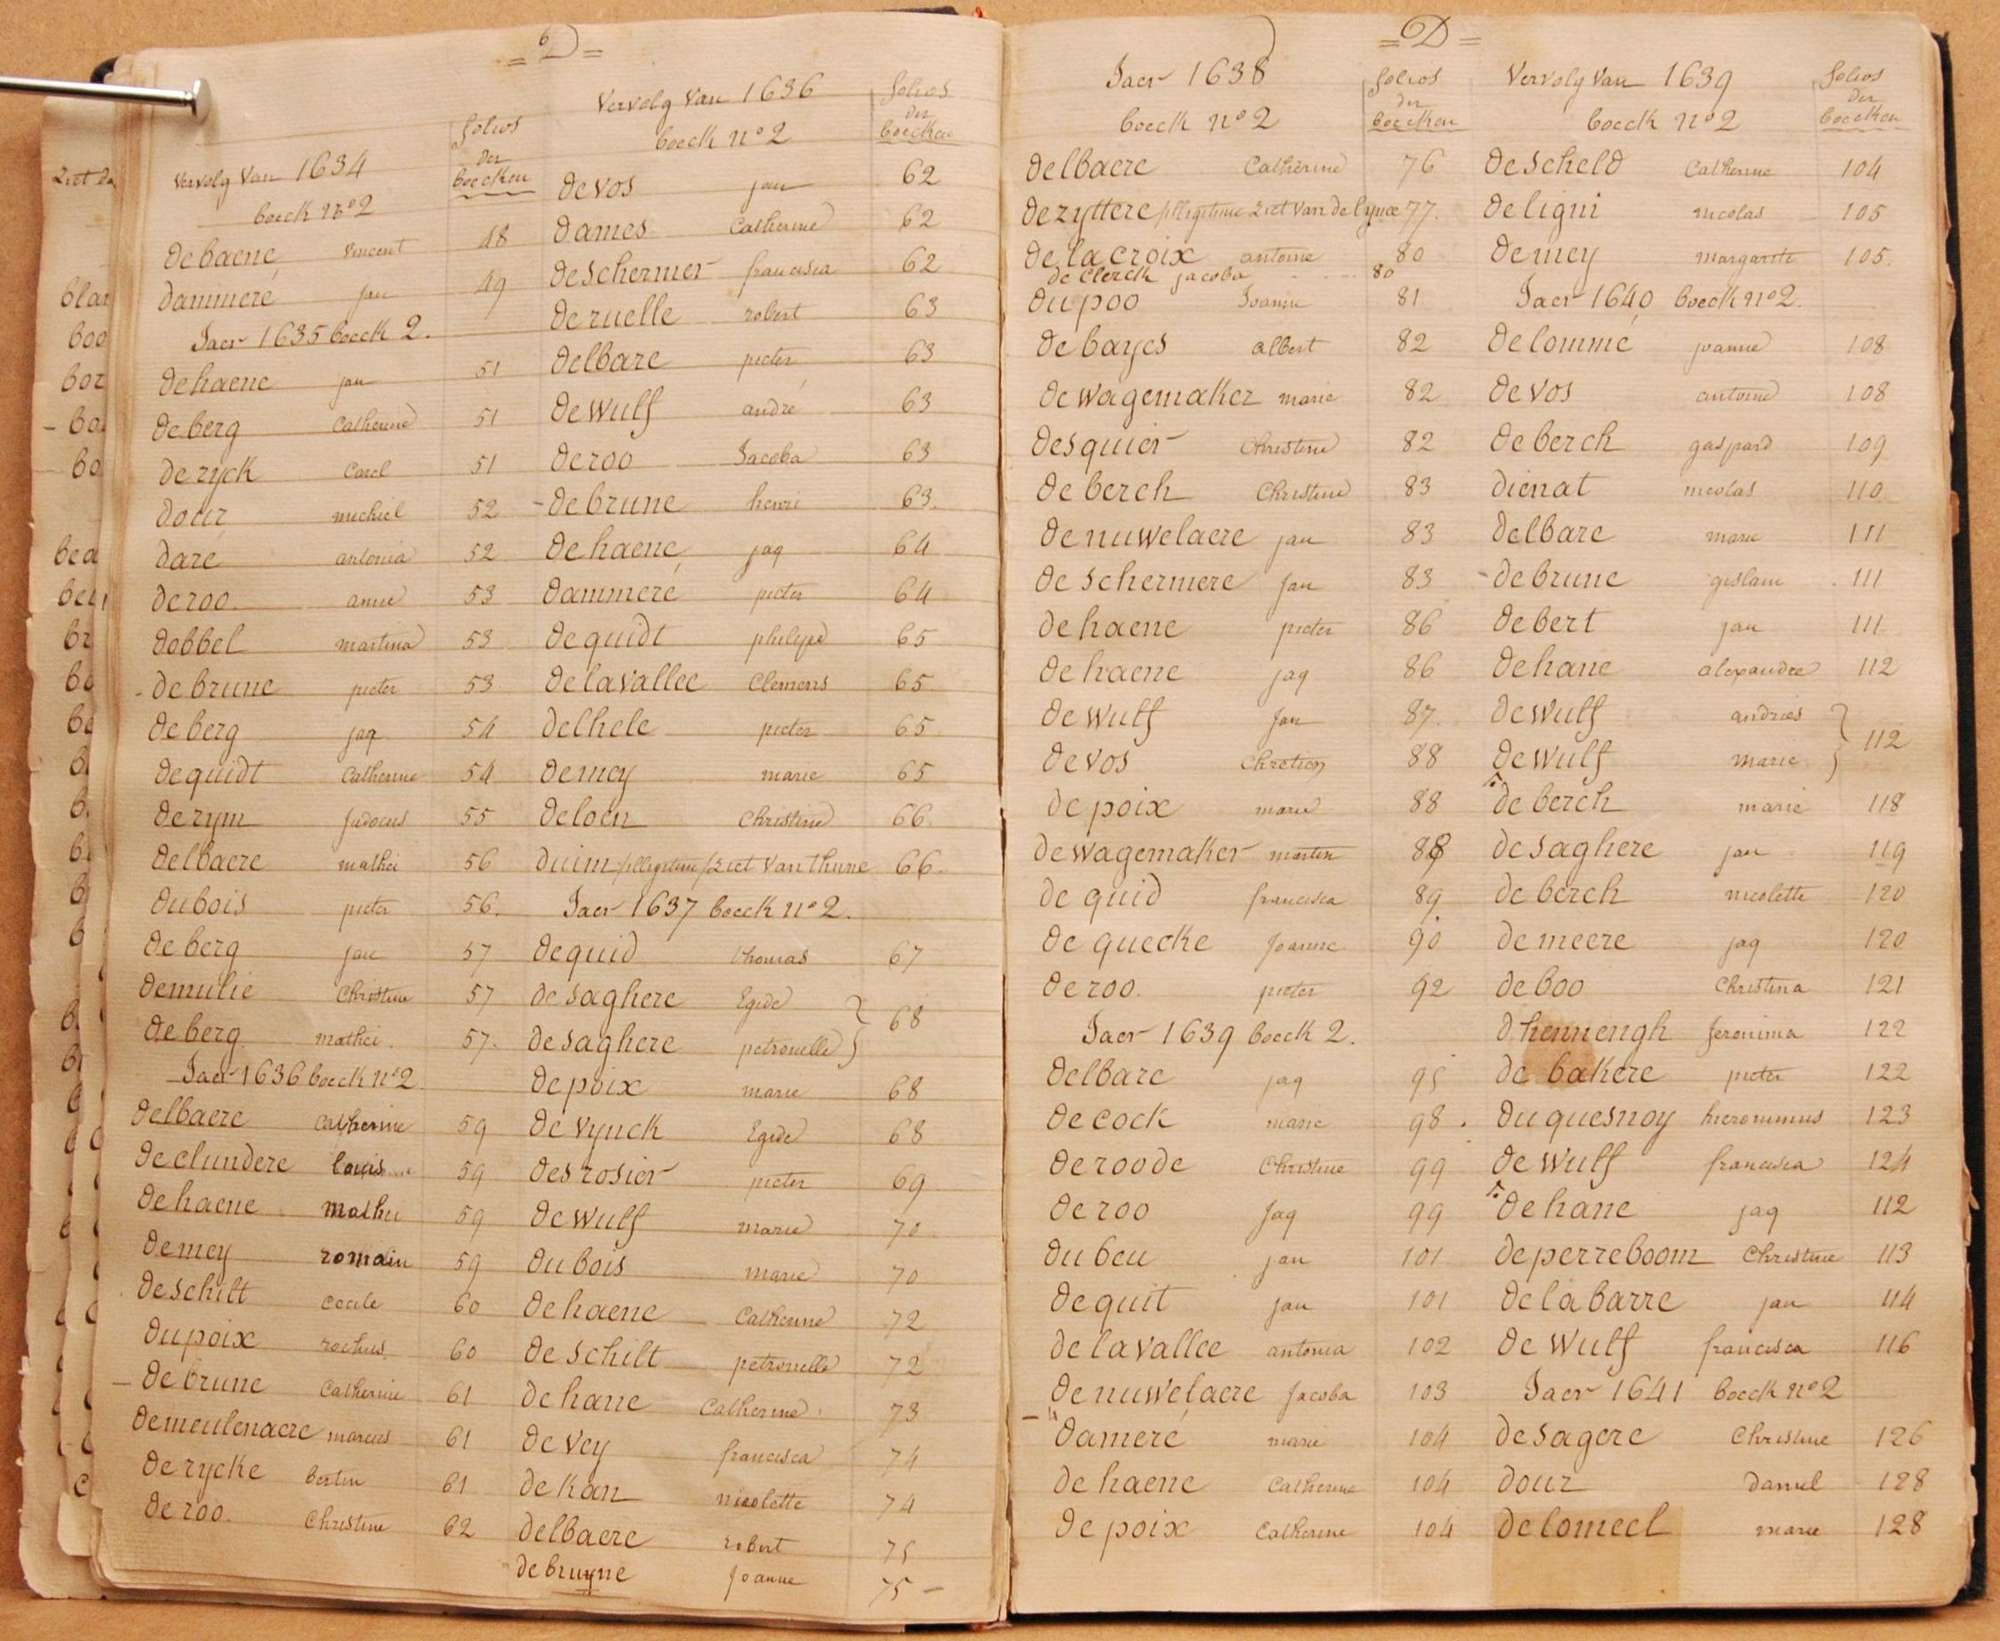 = D =
Vervolg Van 1634
boeck nº 2
folios
der
boecken
debaene vincent 48
dammere jan 49
Jaer 1635 boeck 2.
dehaene jan 51
deberg Catherine 51
deryck Carel 51
dour michiel 52
daré antonia 52
deroo anne 53
dobbel martina 53
- debrune pieter 53
deberg jaq 54
dequidt Catherine 54
derym Judocus 55
delbaere mathei 56
dubois pieter 56.
deberg jan 57
demulie Christine 57
deberg mathei 57.
Jaer 1636 boeck nº 2
delbaere Catherine 59
declundere louis 59
dehaene Mathei 59
demey romain 59
deschilt Cecile 60
dupoix rochus 60
- debrune Catherine 61
demeulenaere marcus 61
derycke bertin 61
deroo Christine 62
Vervolg Van 1636
boeck nº 2
folios
der
boecken
devos jan 62
dames Catherine 62
deschermer francisca 62
deruelle robert 63
delbare pieter 63
dewulf andré 63
deroo Jacoba 63
- debrune henri 63.
dehaene jaq 64
dammeré pieter 64
dequidt philippe 65
delavallee Clemens 65
delhele pieter 65
demey marie 65
deloen Christine 66
duim /illigitime/ ziet Vanthune 66.
Jaer 1637 boeck nº 2.
dequid thomas 67
desaghere Egide } 68
desaghere petronelle
depoix marie 68
devynck Egide 68
desrosier pieter 69
dewulf marie 70
dubois marie 70
dehaene Catherine 72
deschilt petronelle 72
dehane Catherine 73
devey francisca 74
dekan nicolette 74
delbaere robert 75
debruyne Joanne 75 -
= D =
Jaer 1638
boeck nº 2
folios
der
boecken
delbaere Catherine 76
dezyttere /illigitime ziet Van de lynce 77.
delacroix antoine 80
de Clerck jacoba 80
dupoo Joanne 81
debayes albert 82
dewagemaker marie 82
desquier Christine 82
deberch Christine 83
denuwelaere jan 83
deschermere Jan 83
dehaene pieter 86
dehaene jaq 86
dewulf Jan 87.
devos Chretien 88
depoix marie 88
dewagemaker martin 88
dequid francisca 89
dequecke Joanne 90
deroo. pieter 92
Jaer 1639 boeck 2.
delbare jaq 95
decock marie 98.
deroode Christine 99
deroo Jaq 99
dubeu jan 101
dequit jan 101
delavallee antonia 102
denuwelaere Jacoba 103
dameré marie 104
dehaene Catherine 104
depoix Catherine 104
Vervolg Van 1639
boeck nº 2
folios
der
boecken
descheld Catherine 104
deligni nicolas 105
demey margarite 105.
Jaer 1640 boeck nº 2.
delomme joanne 108
devos antoine 108
deberch gaspard 109
dienat nicolas 110
delbare marie 111
- debrune gislain 111
debert jan 111
dehane alexandre 112
dewulf andries } 112
dewulf marie
deberch marie 118
desaghere jan 119
deberch nicolette 120
demeere jaq 120
deboo Christina 121
dhennengh Jeronima 122
debakere pieter 122
duquesnoy hieronimus 123
dewulf francisca 124
dehane jaq 112
deperreboom Christine 113
delabarre jan 114
dewulf francisca 116
Jaer 1641 boeck nº 2
desagere Christine 126
dour daniel 128
delomeel marie 128